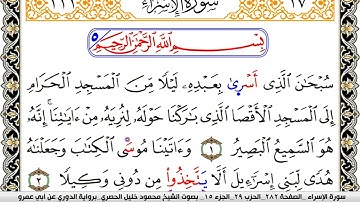 سُورَةُ الإِسْرَاءِ ١٧
بِسْمِ اللَّهِ الرَّحْمَٰنِ الرَّحِيمِ
سُبْحَانَ الَّذِي أَسْرَىٰ بِعَبْدِهِ لَيْلًا مِّنَ الْمَسْجِدِ الْحَرَامِ
إِلَى الْمَسْجِدِ الْأَقْصَا الَّذِي بَارَكْنَا حَوْلَهُ لِنُرِيَهُ مِنْ آيَاتِنَا إِنَّهُ
هُوَ السَّمِيعُ الْبَصِيرُ ١ وَءَاتَيْنَا مُوسَى الْكِتَابَ وَجَعَلْنَاهُ
هُدًى لِّبَنِي إِسْرَاءِيلَ أَلَّا يَتَّخِذُوا مِن دُونِي وَكِيلًا ٢
سورة الإسراء . الصفحة ٢٨٢ الحزب ٢٩ . الجزء ١٥ . بصوت الشيخ محمود خليل الحصري برواية الدوري عن أبي عمرو